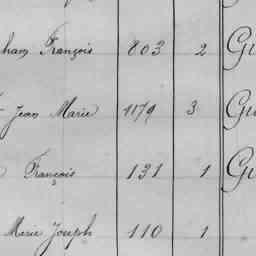 ham François 803 2 Gu
Jean Marie 1179 3 Gu
François 131 1 Gu
Marie Joseph 110 1